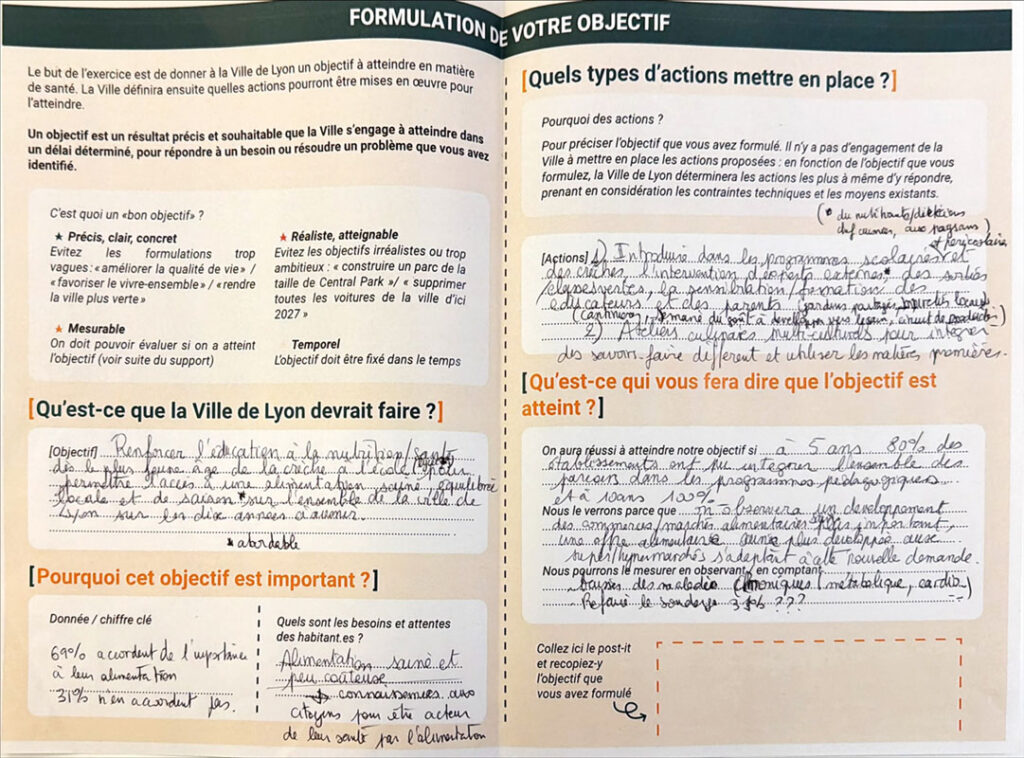 FORMULATION DE VOTRE OBJECTIF
Le but de l'exercice est de donner à la Ville de Lyon un objectif à atteindre en matière
de santé. La Ville définira ensuite quelles actions pourront être mises en œuvre pour
l'atteindre.
Un objectif est un résultat précis et souhaitable que la Ville s'engage à atteindre dans
un délai déterminé, pour répondre à un besoin ou résoudre un problème que vous avez
identifié.
C'est quoi un «bon objectif» ?
★ Précis, clair, concret
Evitez les formulations trop
vagues : « améliorer la qualité de vie » /
« favoriser le vivre-ensemble » / « rendre
la ville plus verte »
★ Mesurable
On doit pouvoir évaluer si on a atteint
l'objectif (voir suite du support)
★ Réaliste, atteignable
Evitez les objectifs irréalistes ou trop
ambitieux : « construire un parc de la
taille de Central Park »/ « supprimer
toutes les voitures de la ville d'ici
2027 »
Temporel
L'objectif doit être fixé dans le temps
[Qu'est-ce que la Ville de Lyon devrait faire ?]
[Objectif] Renforcer l'éducation à la nutrition/santé
dès le plus jeune âge de la crèche à l'école pour
permettre l'accès à une alimentation saine, équilibrée
locale et de saison * sur l'ensemble de la ville de
Lyon sur les dix années à venir.
* abordable
[Pourquoi cet objectif est important ?]
Donnée / chiffre clé
69% accordent de l'importance
à leur alimentation
31% n'en accordent pas.
Quels sont les besoins et attentes
des habitant.es ?
Alimentation saine et
peu coûteuse
→ connaissances aux
citoyens pour être acteur
de leur santé par l'alimentation
[Quels types d'actions mettre en place ?]
Pourquoi des actions ?
Pour préciser l'objectif que vous avez formulé. Il n'y a pas d'engagement de la
Ville à mettre en place les actions proposées : en fonction de l'objectif que vous
formulez, la Ville de Lyon déterminera les actions les plus à même d'y répondre,
prenant en considération les contraintes techniques et les moyens existants.
(* du nutritionniste/diététiciens
aux paysans)
et périscolaires
[Actions] 1) Introduire dans les programmes scolaires et
des crèches, l'intervention d'experts externes*, des sorties
classes vertes, la sensibilisation/formation des
éducateurs et des parents (jardins partagés, locaux
(cantines), semaine du goût à développer circuit de production)
2) Ateliers culinaires multi-culturels pour intégrer
des savoirs-faire différent et utiliser les matières premières.
[Qu'est-ce qui vous fera dire que l'objectif est
atteint ?]
On aura réussi à atteindre notre objectif si à 5 ans 80% des
établissements ont pu intégrer l'ensemble des
parcours dans les programmes pédagogiques
et à 10 ans 100%
Nous le verrons parce que on observera un développement
des commerces/marchés alimentaires plus important,
une offre alimentaire saine plus développée avec
super/hypermarchés s'adaptant à cette nouvelle demande.
Nous pourrons le mesurer en observant, en comptant
baisses des maladies chroniques (métabolique, cardio)
- Refaire le sondage 31% ???
Collez ici le post-it
et recopiez-y
l'objectif que
vous avez formulé